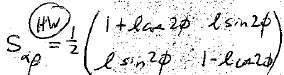 S_{αβ}^{HW} = 1/2 ( 1+l cos 2ϕ   l sin 2ϕ
l sin 2ϕ   1-l cos 2ϕ )